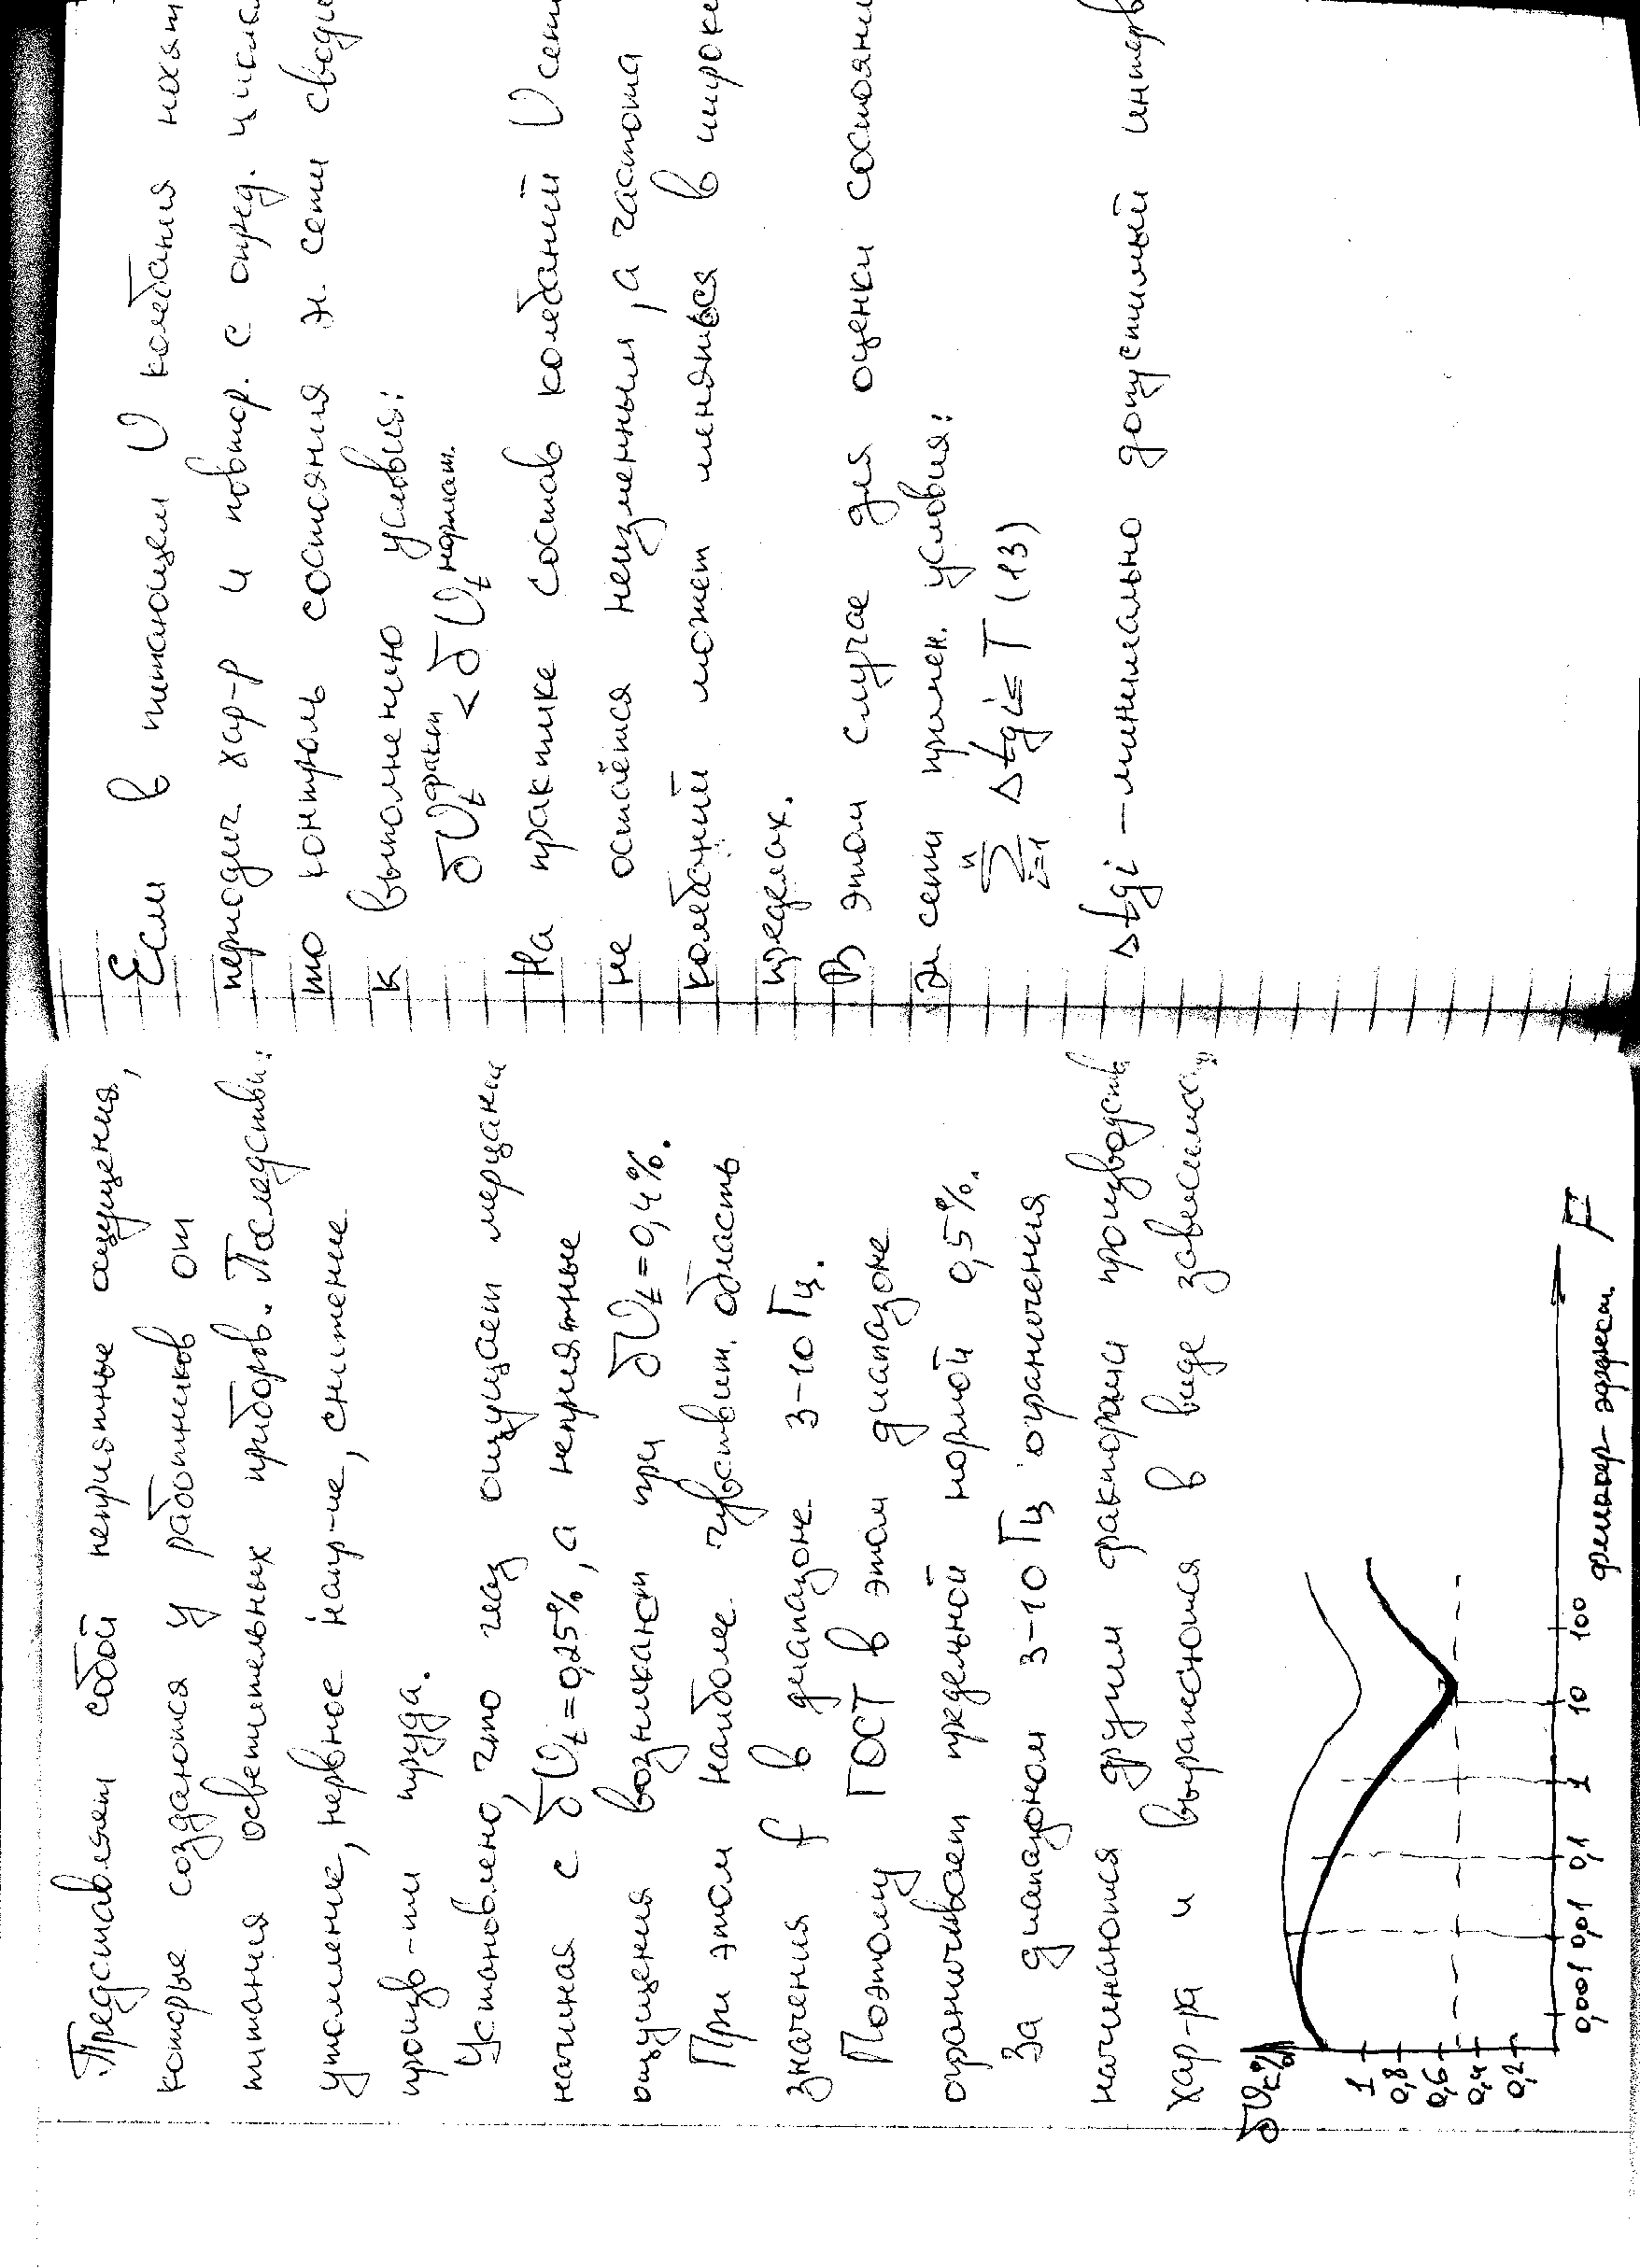 Представляют собой неприятные ощущения,
которые создаются у работников от
питания осветительных приборов. Последстви:
утомление, нервное напр-ие, снижение
произв-ти труда.
Установлено, что глаз ощущает мерцани
начиная с δUt=0,25%, а неприятные
ощущения возникают при δUt=0,4%.
При этом наиболее чувствит. область
значения f в диапазоне 3-10 Гц.
Поэтому ГОСТ в этом диапазоне
ограничивает предельной нормой 0,5%.
За диапазоном 3-10 Гц ограничения
начинаются другими факторами производств
хар-ра и выражаются в виде зависимос
δUt%
1
0,8
0,6
0,4
0,2
0,001 0,01 0,1 1 10 100
фликер-эффект F
Если в питающем U колебания носят
периодич хар-р и повтор. с опред. числ
то контроль состояния эл. сети сводит
к выполнению условия:
δUt факт < δUt нормат.
На практике состав колебаний U сети
не остаётся неизменным, а частота
колебаний может меняться в широки
пределах.
В этом случае для оценки состояни
эл сети примен. условия:
n Σ i=1 Δtgi ≤ T (13)
Δtgi – минимально допустимый интерв